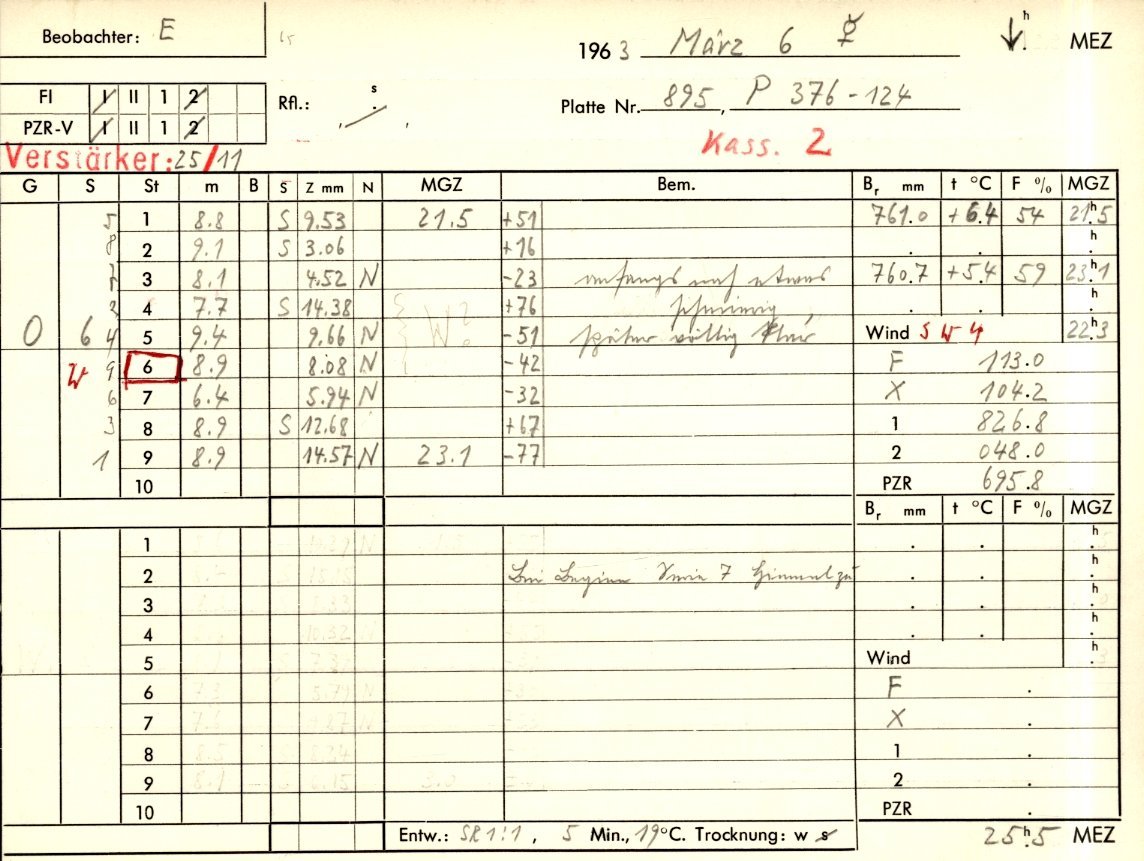 Beobachter: E
196 3 März 6 ☿ ↓ h MEZ
FI I II 1 2
Rfl.: s
Platte Nr. 895, P 376-124
PZR-V I II 1 2
Kass. 2
Verstärker: 25/11
G S St m B S Z mm N MGZ Bem. Br mm t °C F % MGZ
5 1 8.8 S 9.53 21.5 +51 761.0 +6.4 54 21h5
8 2 9.1 S 3.06 +16 . . h
7 3 8.1 4.52 N -23 anfangs noch etwas 760.7 +5.4 59 23h1
2 4 7.7 S 14.38 +76 schmierig, . . h
0 6 4 5 9.4 9.66 N W? -51 später völlig klar Wind SW 4 22h3
W 9 6 8.9 8.08 N -42 F 113.0
6 7 6.4 5.94 N -32 X 104.2
3 8 8.9 S 12.68 +67 1 826.8
1 9 8.9 14.57 N 23.1 -77 2 048.0
10 PZR 695.8
Br mm t °C F % MGZ
1 . . h
2 Bei Beginn Serie 7 Himmel zu . . h
3 . . h
4 . . h
5 Wind h
6 F .
7 X .
8 1 .
9 2 .
10 PZR .
Entw.: SR 1:1, 5 Min., 19°C. Trocknung: w s 25h5 MEZ